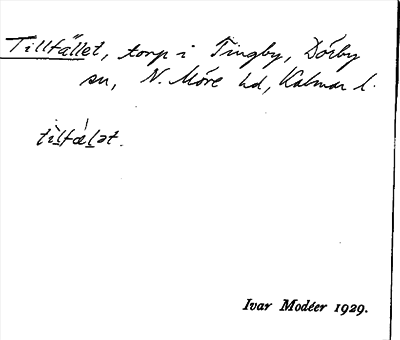 Tillfället, torp i Tingby, Dörby
sn, N. Möre hd, Kalmar l.
tìlfǽlət.
Ivar Modéer 1929.